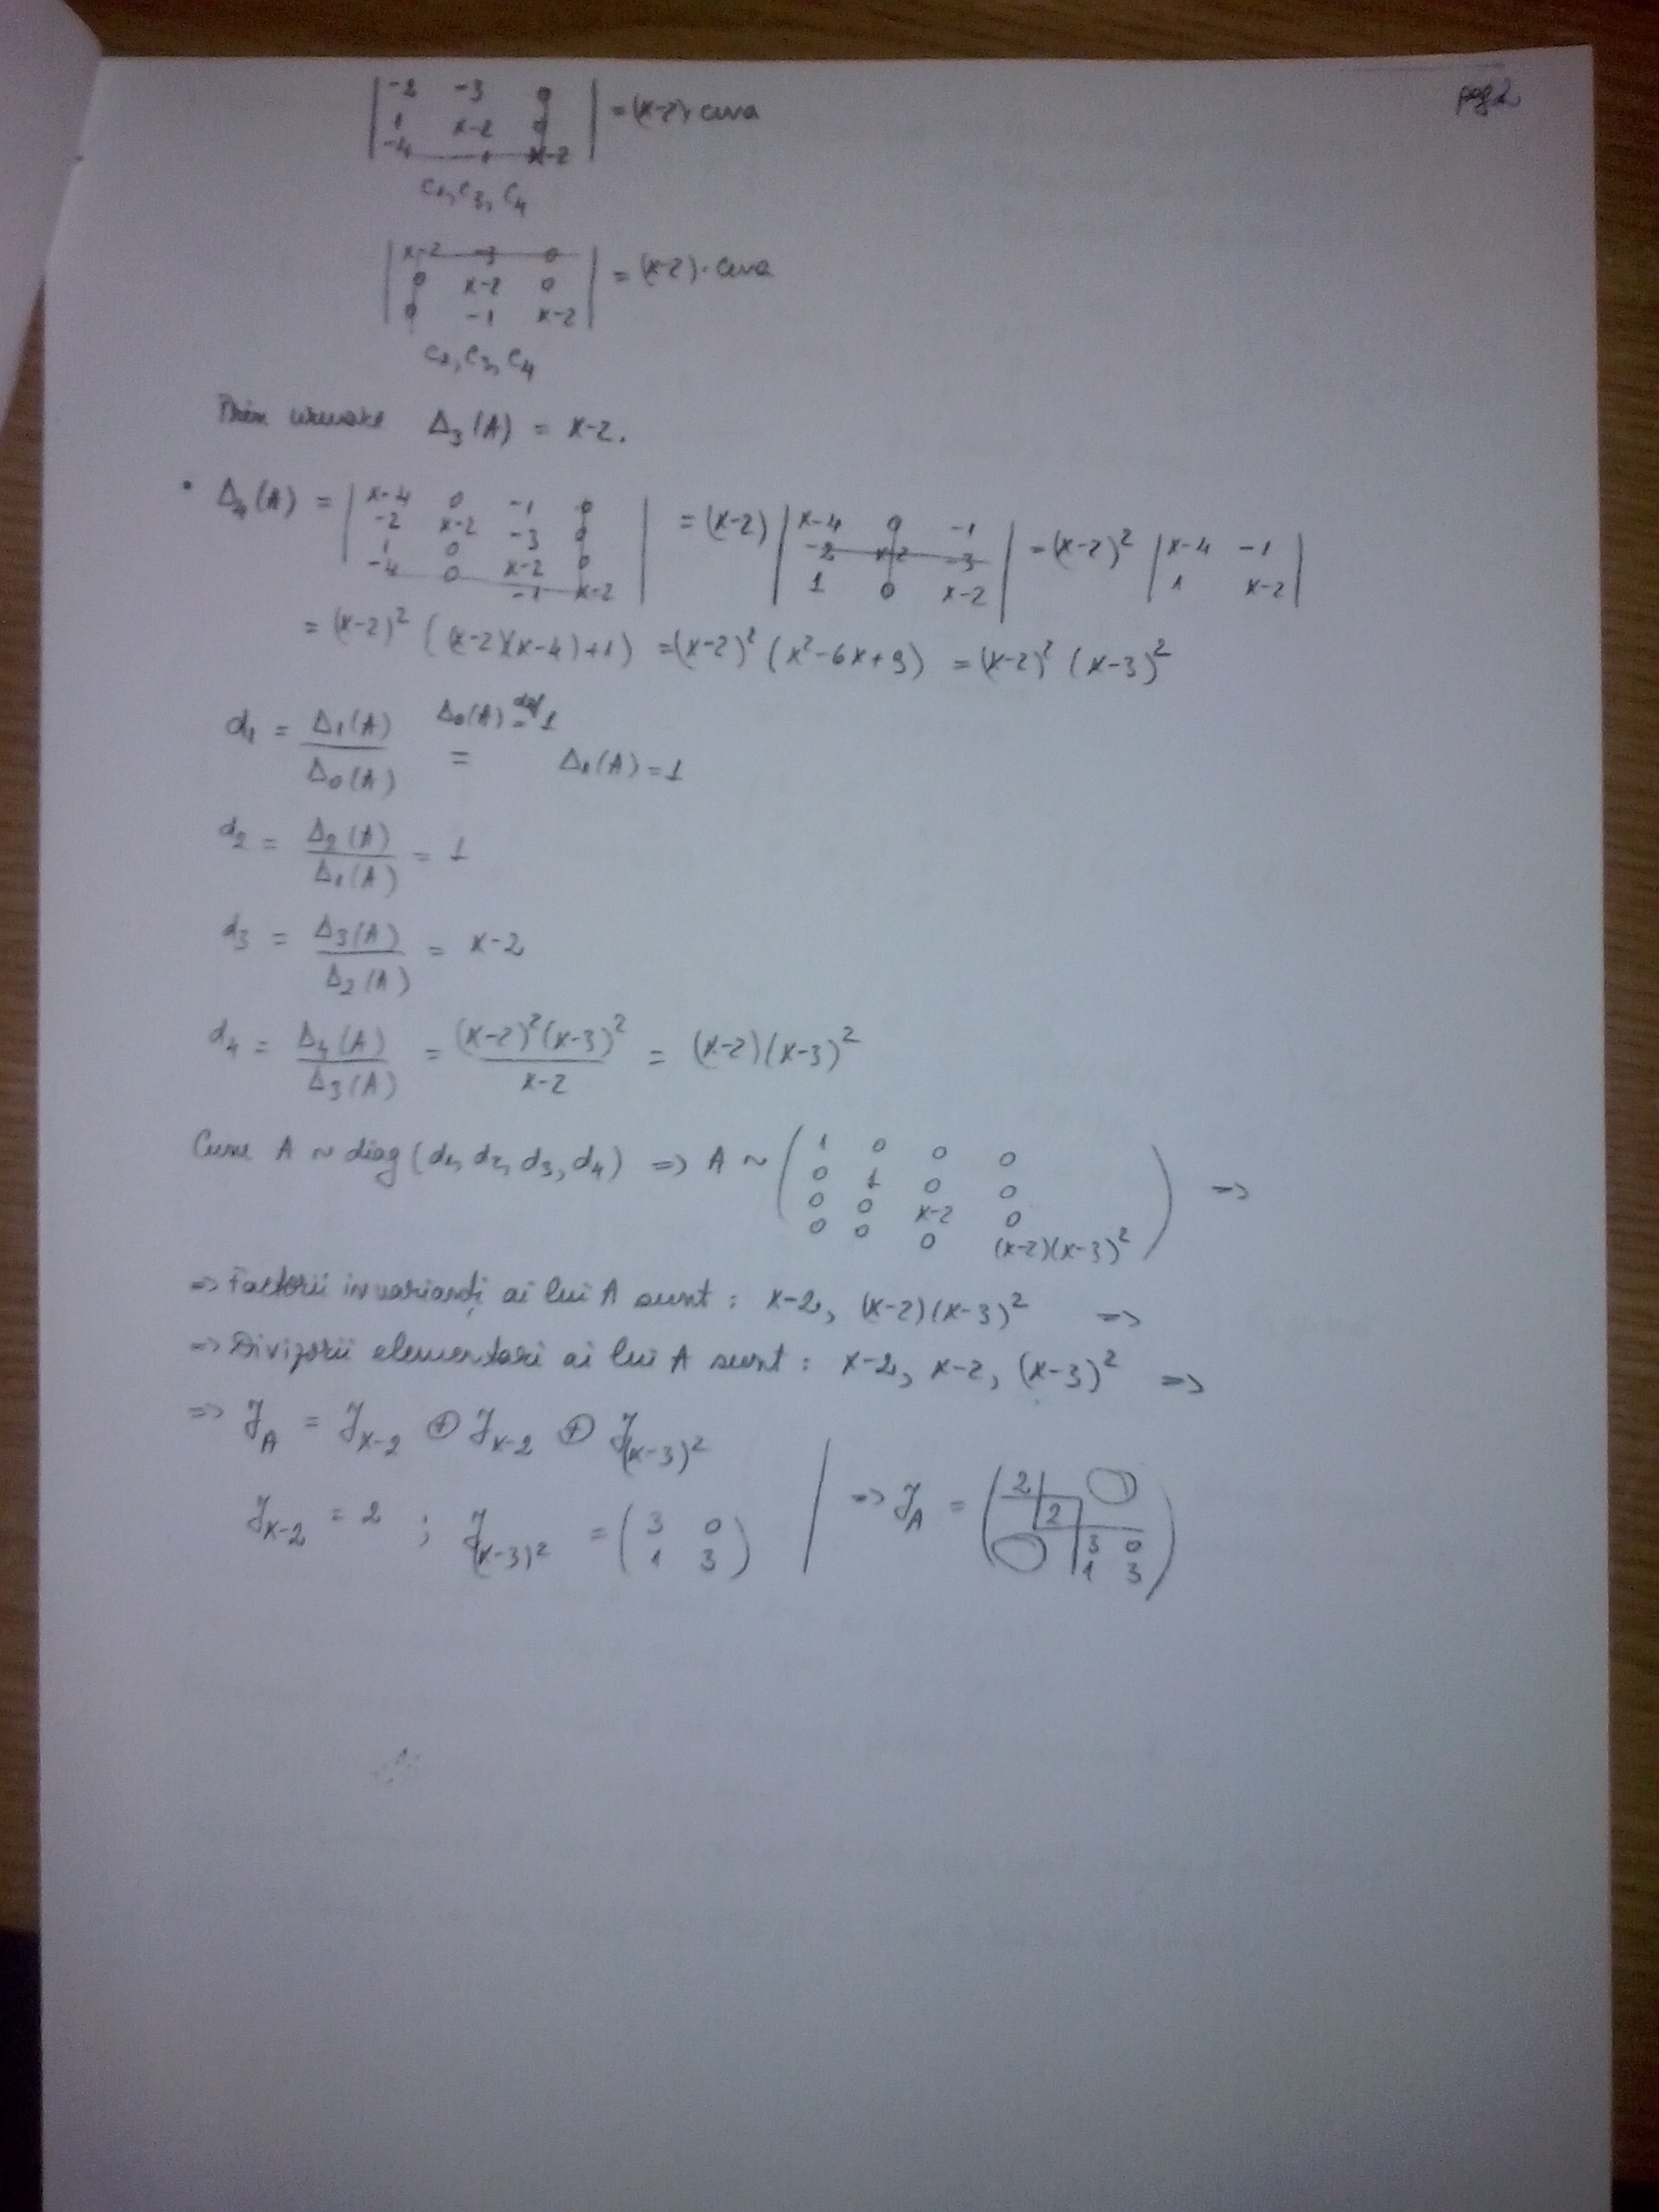 pg 2
| -2 -3 0 |
| 1 x-2 0 | = (x-2) · ceva
| -4 -1 x-2 |
C1, C3, C4
| x-2 -3 0 |
| 0 x-2 0 | = (x-2) · ceva
| 0 -1 x-2 |
C2, C3, C4
Prin urmare Δ3(A) = x-2.
• Δ4(A) = | x-4 0 -1 0 | = (x-2) | x-4 0 -1 | = (x-2)² | x-4 -1 |
| -2 x-2 -3 0 | | -2 x-2 -3 | | 1 x-2 |
| 1 0 x-2 0 | | 1 0 x-2 |
| -4 0 -1 x-2 |
= (x-2)² ((x-2)(x-4)+1) = (x-2)² (x²-6x+9) = (x-2)² (x-3)²
d1 = Δ1(A)/Δ0(A) = Δ1(A) = 1
Δ0(A) def= 1
d2 = Δ2(A)/Δ1(A) = 1
d3 = Δ3(A)/Δ2(A) = x-2
d4 = Δ4(A)/Δ3(A) = (x-2)²(x-3)²/x-2 = (x-2)(x-3)²
Cum A ~ diag (d1, d2, d3, d4) => A ~ ( 1 0 0 0 ) =>
( 0 1 0 0 )
( 0 0 x-2 0 )
( 0 0 0 (x-2)(x-3)² )
=> Factorii invarianți ai lui A sunt : x-2, (x-2)(x-3)² =>
=> Divizorii elementari ai lui A sunt : x-2, x-2, (x-3)² =>
=> J_A = J_x-2 ⊕ J_x-2 ⊕ J_(x-3)²
J_x-2 = 2 ; J_(x-3)² = ( 3 0 ) | => J_A = ( 2 0 )
( 1 3 ) ( 2 )
( 0 3 0 )
( 1 3 )